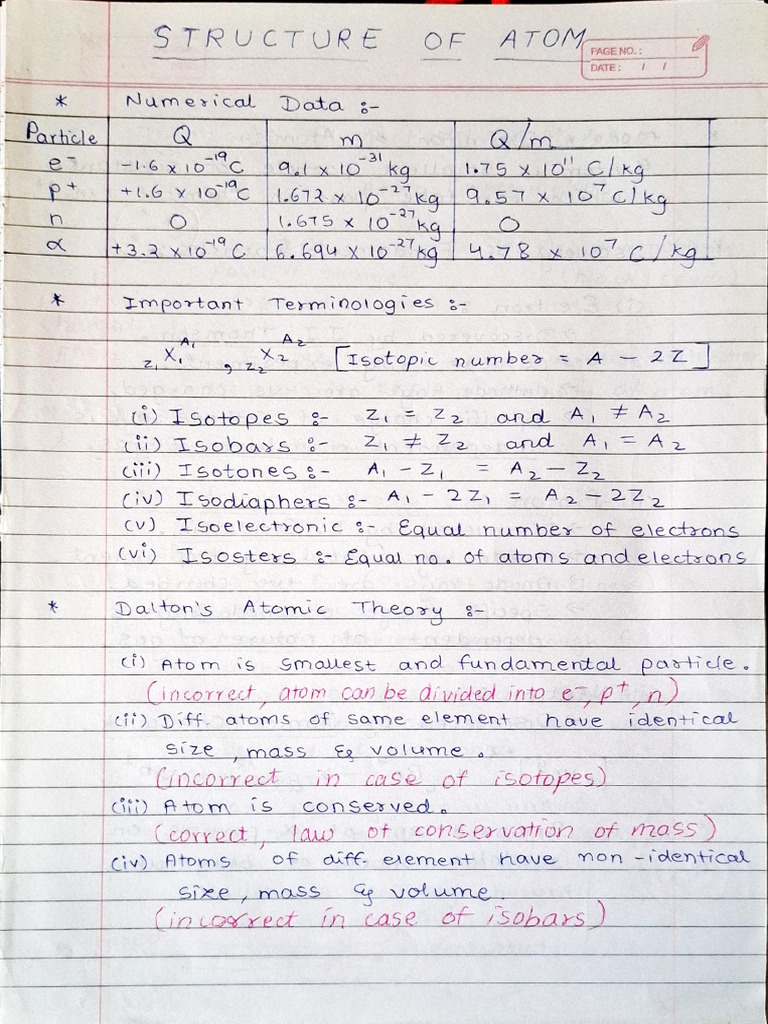 STRUCTURE OF ATOM
PAGE NO.:
DATE: / /
* Numerical Data :-
Particle Q m Q/m
e⁻ -1.6 x 10⁻¹⁹C 9.1 x 10⁻³¹ kg 1.75 x 10¹¹ C/kg
p⁺ +1.6 x 10⁻¹⁹C 1.672 x 10⁻²⁷ kg 9.57 x 10⁷ C/kg
n 0 1.675 x 10⁻²⁷ kg 0
α +3.2 x 10⁻¹⁹ C 6.694 x 10⁻²⁷ kg 4.78 x 10⁷ C/kg
* Important Terminologies :-
Z₁ X₁ A₁ , Z₂ X₂ A₂ [Isotopic number = A - 2Z]
(i) Isotopes :- Z₁ = Z₂ and A₁ ≠ A₂
(ii) Isobars :- Z₁ ≠ Z₂ and A₁ = A₂
(iii) Isotones :- A₁ - Z₁ = A₂ - Z₂
(iv) Isodiaphers :- A₁ - 2Z₁ = A₂ - 2Z₂
(v) Isoelectronic :- Equal number of electrons
(vi) Isosters :- Equal no. of atoms and electrons
* Dalton's Atomic Theory :-
(i) Atom is smallest and fundamental particle.
(incorrect, atom can be divided into e⁻, p⁺, n)
(ii) Diff. atoms of same element have identical
size, mass & volume.
(incorrect in case of isotopes)
(iii) Atom is conserved.
(correct, law of conservation of mass)
(iv) Atoms of diff. element have non-identical
size, mass & volume.
(incorrect in case of isobars)